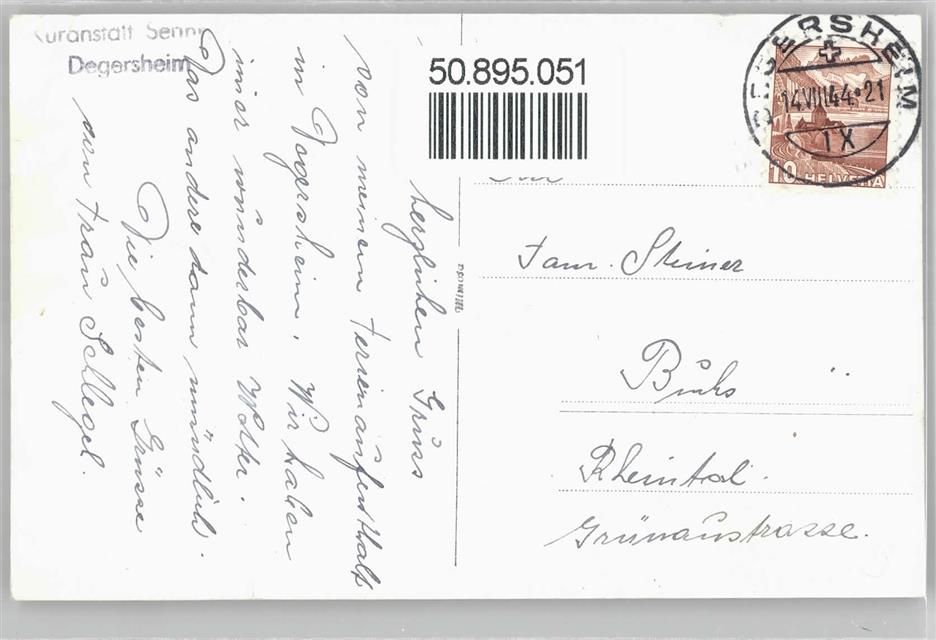 Kuranstalt Senn
Degersheim
50.895.051
DEGERSHEIM
14.VIII.44.-21
IX
10 HELVETIA
herzlichen Gruss
von meinem Ferienaufenthalt
in Degersheim. Wir haben
imer wunderbar Wetter.
Das andere dann mündlich.
Die besten Grüsse
von Frau Schlegel.
Fam. Steiner
Buchs
Rheintal.
Grünaustrasse.